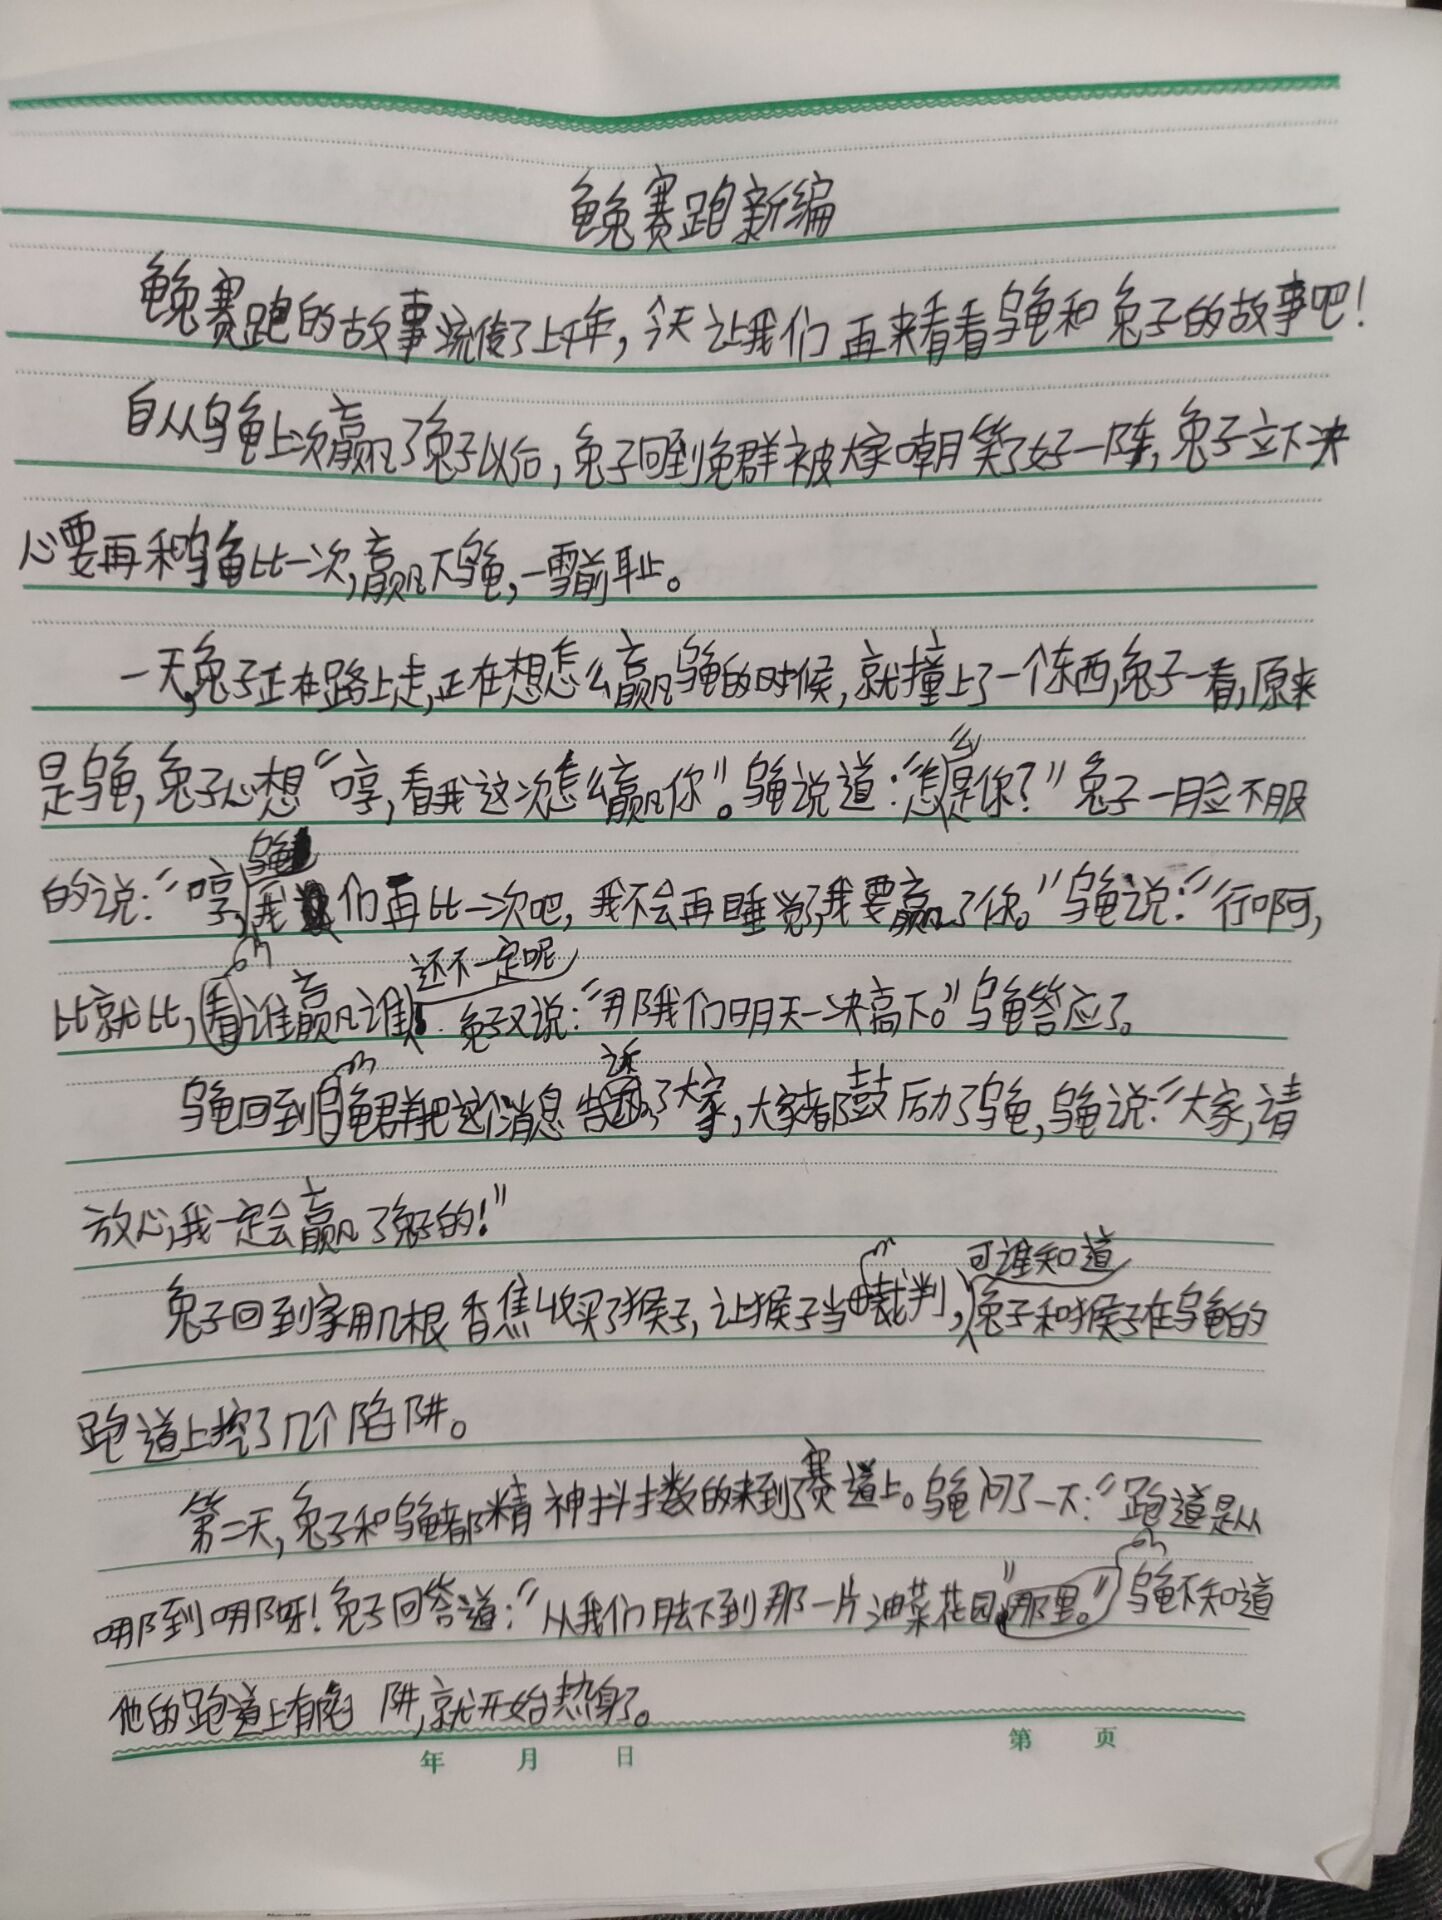 龟兔赛跑新编
龟兔赛跑的故事流传了上千年，今天让我们再来看看乌龟和兔子的故事吧！
自从乌龟上次赢了兔子以后，兔子回到兔群被大家嘲笑了好一阵，兔子立下决
心要再和乌龟比一次，赢下乌龟，一雪前耻。
一天，兔子正在路上走，正在想怎么赢乌龟的时候，就撞上了一个东西，兔子一看，原来
是乌龟，兔子心想“哼，看我这次怎么赢你”。乌龟说道：“怎么是你？”兔子一脸不服
的说：“哼，乌龟我们再比一次吧，我不会再睡觉了，我要赢了你。”乌龟说：“行啊，
比就比，看谁赢谁还不一定呢。兔子又说：“那我们明天一决高下。”乌龟答应了。
乌龟回到龟群把这个消息告诉了大家，大家都鼓励了乌龟，乌龟说：“大家，请
放心，我一定会赢了兔子的！”
兔子回到家用几根香焦收买了猴子，让猴子当裁判，可谁知道兔子和猴子在乌龟的
跑道上挖了几个陷阱。
第二天，兔子和乌龟都精神抖擞的来到了赛道上。乌龟问了一下：“跑道是从
哪到哪呀！兔子回答道：“从我们脚下到那一片油菜花园”那里。”乌龟不知道
他的跑道上有陷阱，就开始热身了。
年 月 日 第 页